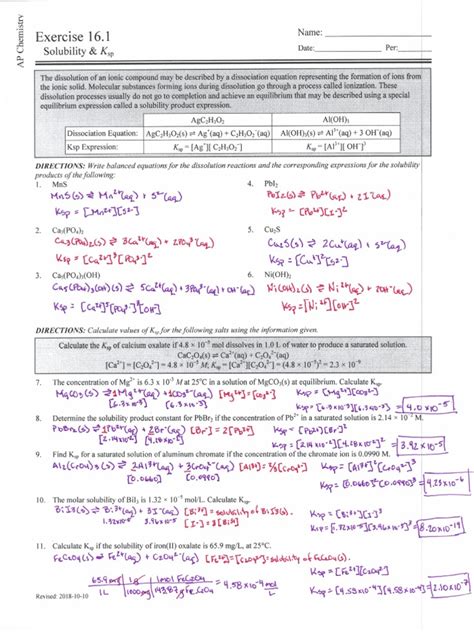 AP Chemistry
Exercise 16.1
Solubility & Ksp
Name:
Date: Per:
The dissolution of an ionic compound may be described by a dissociation equation representing the formation of ions from
the ionic solid. Molecular substances forming ions during dissolution go through a process called ionization. These
dissolution processes usually do not go to completion and achieve an equilibrium that may be described using a special
equilibrium expression called a solubility product expression.
AgC₂H₃O₂ Al(OH)₃
Dissociation Equation: AgC₂H₃O₂(s) ⇌ Ag⁺(aq) + C₂H₃O₂⁻(aq) Al(OH)₃(s) ⇌ Al³⁺(aq) + 3 OH⁻(aq)
Ksp Expression: Ksp = [Ag⁺][C₂H₃O₂⁻] Ksp = [Al³⁺][OH⁻]³
DIRECTIONS: Write balanced equations for the dissolution reactions and the corresponding expressions for the solubility
products of the following:
1. MnS
MnS(s) ⇌ Mn²⁺(aq) + S²⁻(aq)
Ksp = [Mn²⁺][S²⁻]
4. PbI₂
PbI₂(s) ⇌ Pb²⁺(aq) + 2I⁻(aq)
Ksp = [Pb²⁺][I⁻]²
2. Ca₃(PO₄)₂
Ca₃(PO₄)₂(s) ⇌ 3Ca²⁺(aq) + 2PO₄³⁻(aq)
Ksp = [Ca²⁺]³[PO₄³⁻]²
5. Cu₂S
Cu₂S(s) ⇌ 2Cu⁺(aq) + S²⁻(aq)
Ksp = [Cu⁺]²[S²⁻]
3. Ca₅(PO₄)₃(OH)
Ca₅(PO₄)₃(OH)(s) ⇌ 5Ca²⁺(aq) + 3PO₄³⁻(aq) + OH⁻(aq)
Ksp = [Ca²⁺]⁵[PO₄³⁻]³[OH⁻]
6. Ni(OH)₂
Ni(OH)₂(s) ⇌ Ni²⁺(aq) + 2OH⁻(aq)
Ksp = [Ni²⁺][OH⁻]²
DIRECTIONS: Calculate values of Ksp for the following salts using the information given.
Calculate the Ksp of calcium oxalate if 4.8 × 10⁻⁵ mol dissolves in 1.0 L of water to produce a saturated solution.
CaC₂O₄(s) ⇌ Ca²⁺(aq) + C₂O₄²⁻(aq)
[Ca²⁺] = [C₂O₄²⁻] = 4.8 × 10⁻⁵ M, Ksp = [Ca²⁺][C₂O₄²⁻] = (4.8 × 10⁻⁵)² = 2.3 × 10⁻⁹
7. The concentration of Mg²⁺ is 6.3 × 10⁻³ M at 25°C in a solution of MgCO₃(s) at equilibrium. Calculate Ksp.
MgCO₃(s) ⇌ 1Mg²⁺(aq) + 1CO₃²⁻(aq) [Mg²⁺] = [CO₃²⁻] Ksp = [Mg²⁺][CO₃²⁻]
4.0×10⁻⁵
8. Determine the solubility product constant for PbBr₂ if the concentration of Pb²⁺ in a saturated solution is 2.14 × 10⁻² M.
3.92×10⁻⁵
9. Find Ksp for a saturated solution of aluminum chromate if the concentration of the chromate ion is 0.0990 M.
[0.0660] [0.0990]
4.23×10⁻⁶
10. The molar solubility of BiI₃ is 1.32 × 10⁻⁵ mol/L. Calculate Ksp.
Ksp = [Bi³⁺][I⁻]³
8.20×10⁻¹⁹
11. Calculate Ksp if the solubility of iron(II) oxalate is 65.9 mg/L, at 25°C.
Ksp = [Fe²⁺][C₂O₄²⁻]
= 4.58×10⁻⁴ mol/L
Revised: 2018-10-10